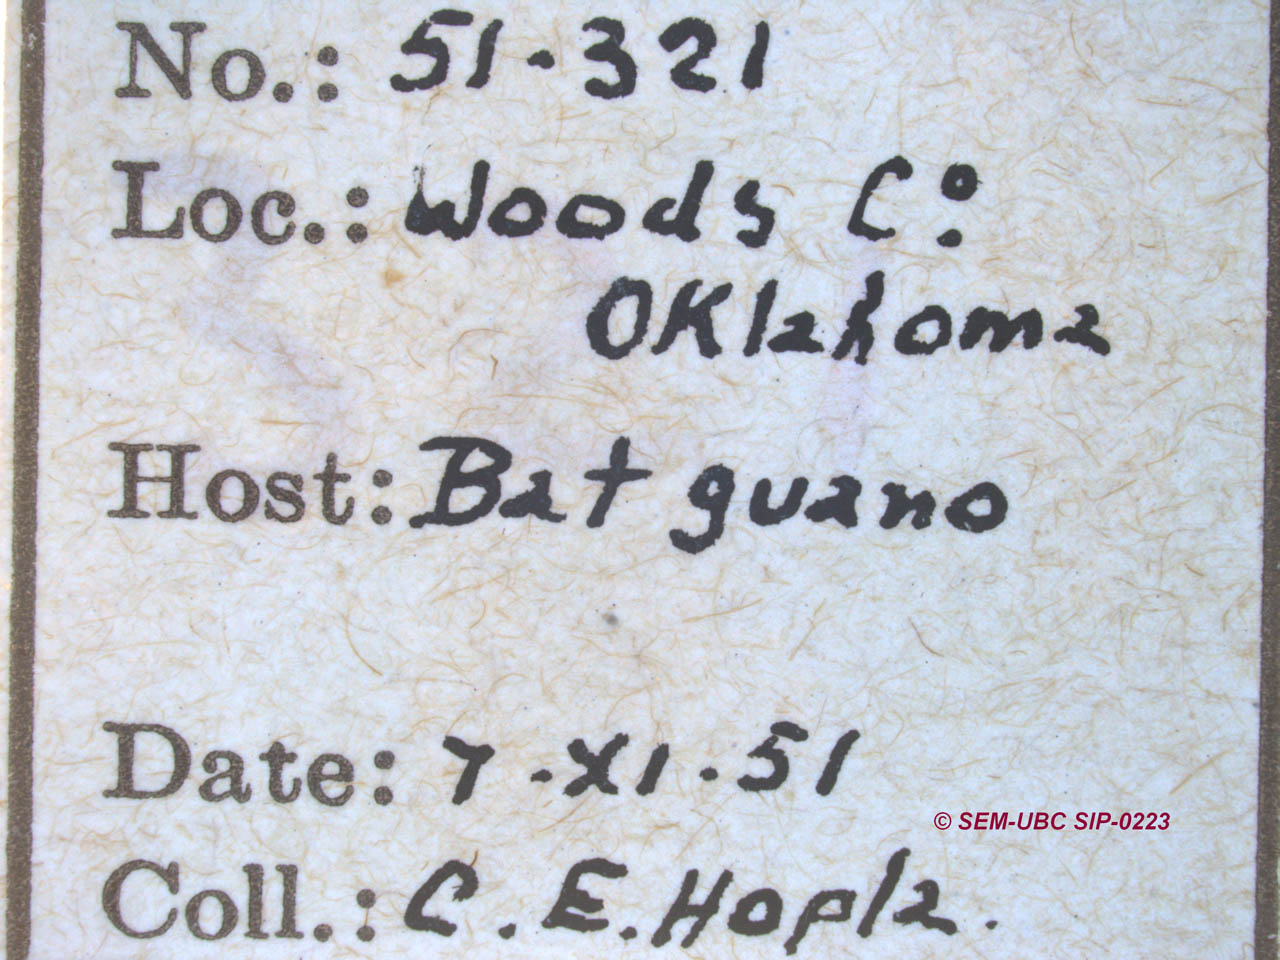 No.: 51-321
Loc.: Woods Co.
Oklahoma
Host: Bat guano
Date: 7-XI-51
© SEM-UBC SIP-0223
Coll.: C. E. Hopla.